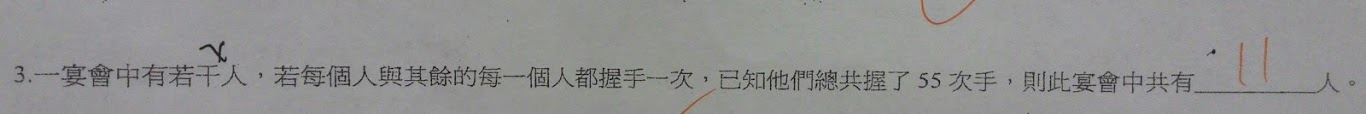 x
3.一宴會中有若干人，若每個人與其餘的每一個人都握手一次，已知他們總共握了 55 次手，則此宴會中共有11人。